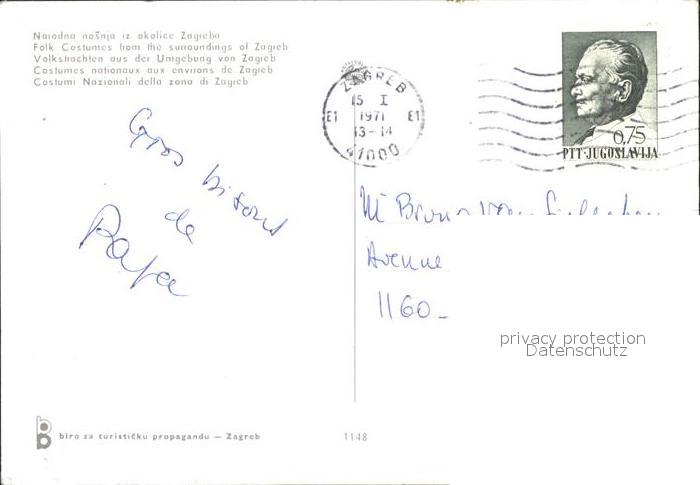 Narodna nošnja iz okolice Zagreba
Folk Costumes from the surroundings of Zagreb
Volkstrachten aus der Umgebung von Zagreb
Costumes nationaux aux environs de Zagreb
Costumi Nazionali della zona di Zagreb
ZAGREB
15 I
E1 1971 E1
13-14
41000
0,75
PTT-JUGOSLAVIJA
Gros bisous
de
Papa
Mr Bruno
Avenue
1160-
privacy protection
Datenschutz
biro za turističku propagandu — Zagreb
1148